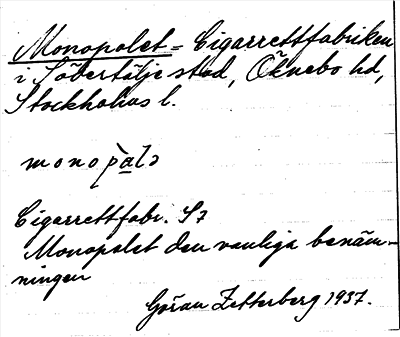 Monopolet = Cigarrettfabriken
i Södertälje stad, Öknebo hd,
Stockholms l.
monopàlə
Cigarrettfabr. S7
Monopolet den vanliga benäm-
ningen
Göran Zetterberg 1937.